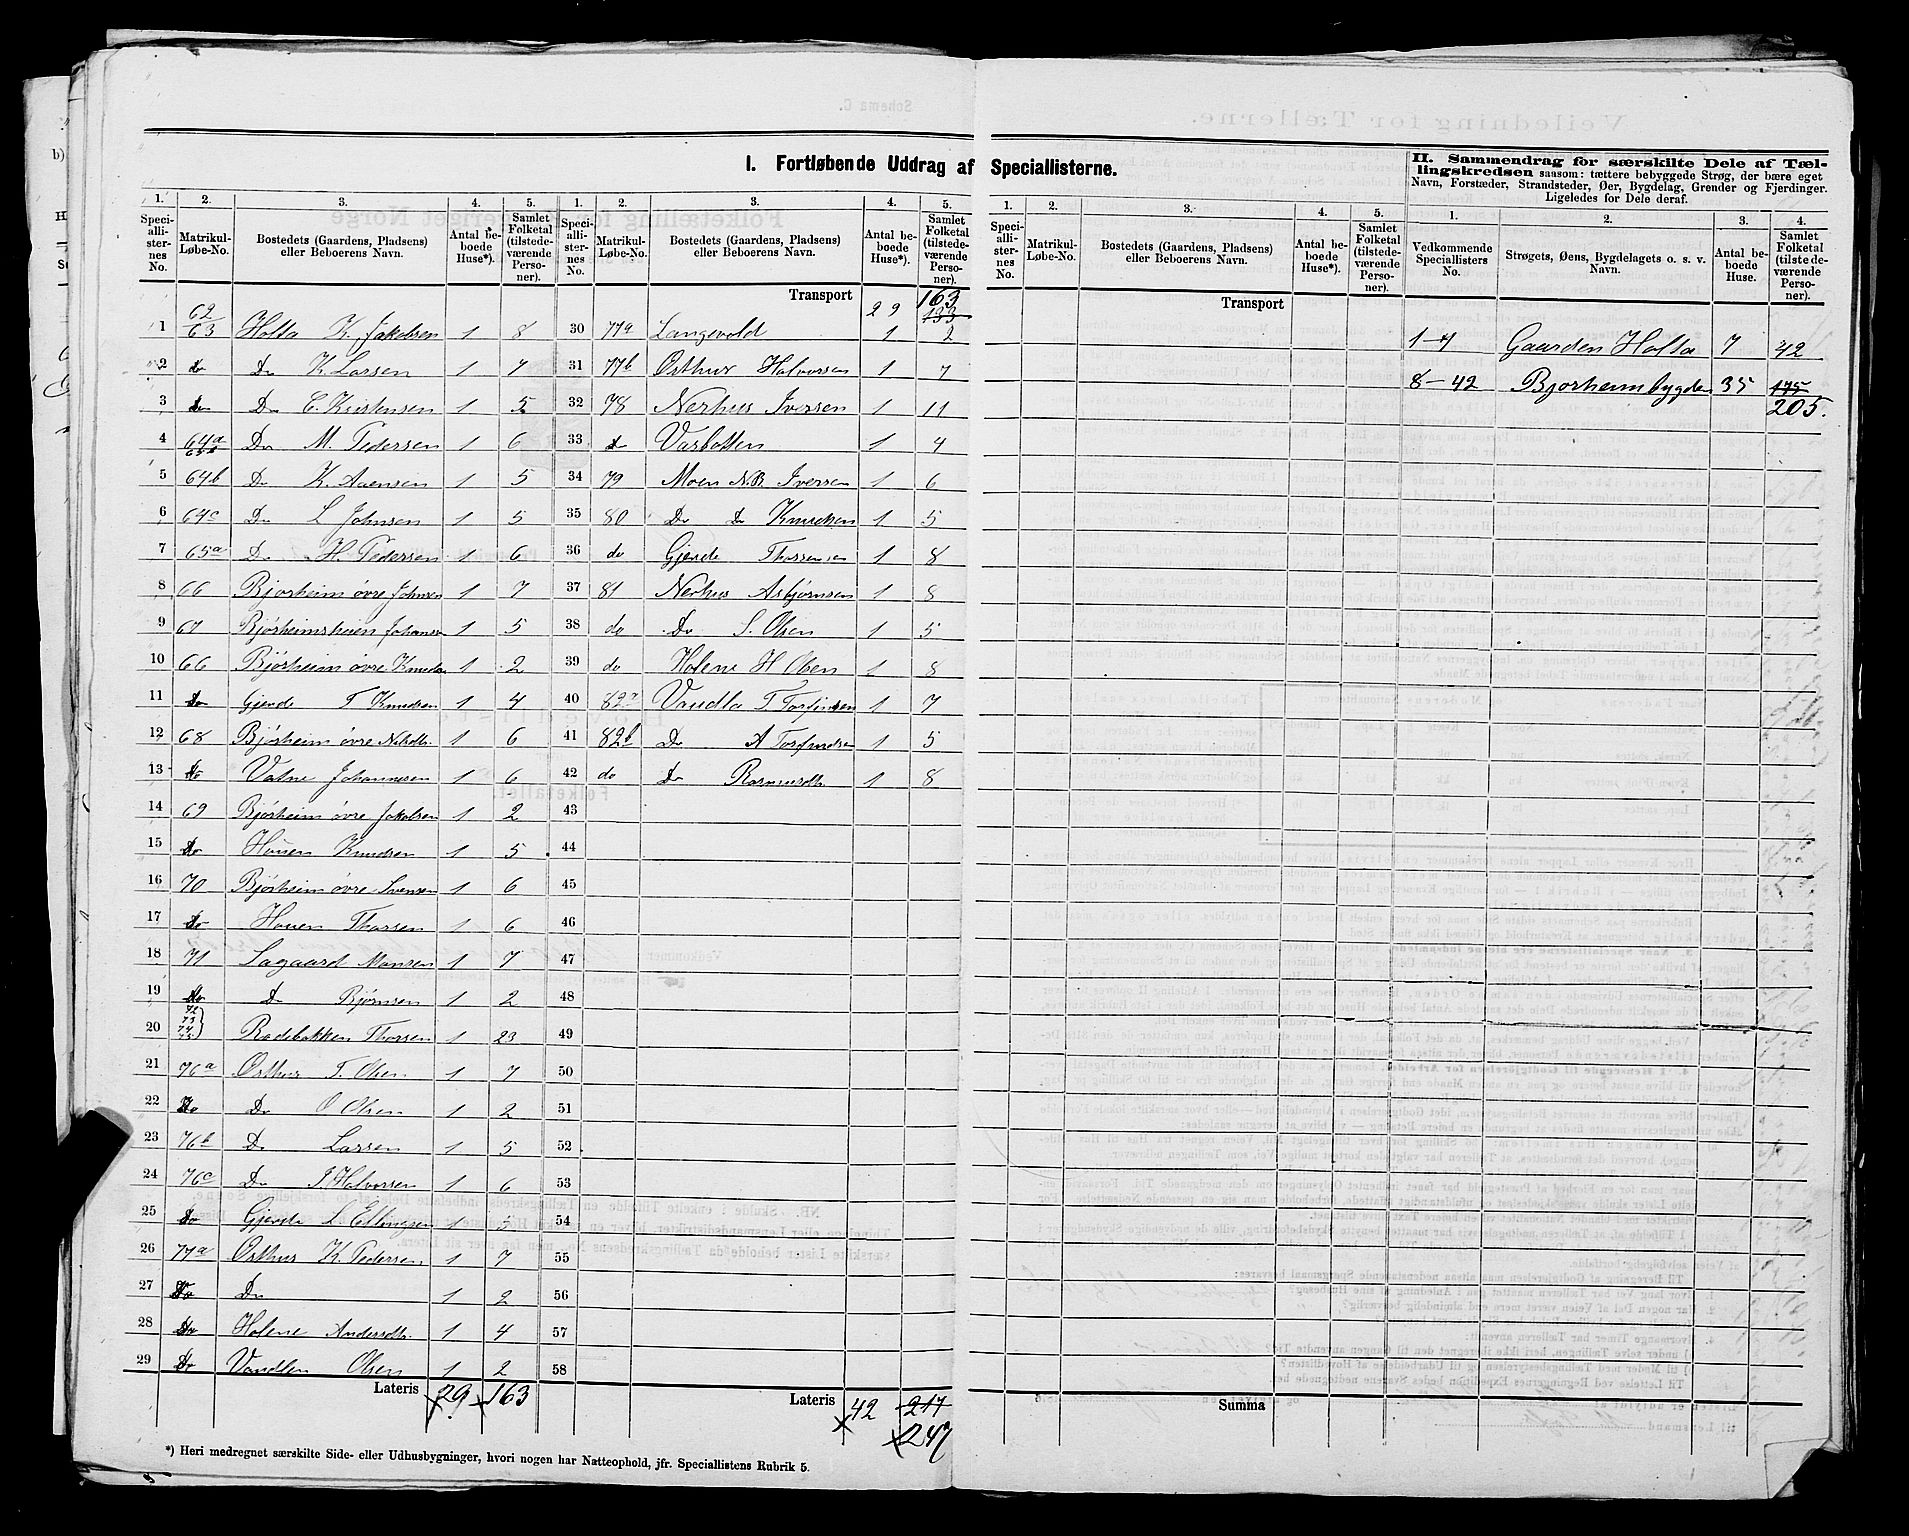 I. Fortløbende Uddrag af Speciallisterne.
II. Sammendrag for særskilte Dele af Tællingskredsen saasom: tættere bebyggede Strøg, der bære eget Navn, Forstæder, Strandsteder, Øer, Bygdelag, Grender og Fjerdinger. Ligeledes for Dele deraf.
1. 2. 3. 4. 5. 1. 2. 3. 4. 5. 1. 2. 3. 4. 5. 1. 2. 3. 4.
Speciallisternes No. Matrikul-Løbe-No. Bostedets (Gaardens, Pladsens) eller Beboerens Navn. Antal beboede Huse*). Samlet Folketal (tilstedeværende Personer).
Speciallisternes No. Matrikul-Løbe-No. Bostedets (Gaardens, Pladsens) eller Beboerens Navn. Antal beboede Huse*). Samlet Folketal (tilstedeværende Personer).
Speciallisternes No. Matrikul-Løbe-No. Bostedets (Gaardens, Pladsens) eller Beboerens Navn. Antal beboede Huse*). Samlet Folketal (tilstedeværende Personer).
Vedkommende Speciallisters No. Strøgets, Øens, Bygdelagets o. s. v. Navn. Antal beboede Huse. Samlet Folketal (tilstedeværende Personer).
1 62 63 Holta K. Jakobsen 1 8
2 do Do K Larsen 1 7
3 do Do C. Kristensen 1 5
4 64a 65b Do M. Pedersen 1 6
5 64b Do K. Aaensen 1 5
6 64c Do L Johnsen 1 5
7 65a Do H. Pedersen 1 6
8 66 Bjorheim øvre Johnsen 1 7
9 67 Bjørheimsheien Johanse 1 5
10 66 Bjørheim øvre Knudsen 1 2
11 Do Gjerde T Knudsen 1 4
12 68 Bjørheim øvre 1 6
13 Do Vatne Johannesen 1 6
14 69 Bjørheim øvre Jakobsen 1 2
15 Do Houen Knudsen 1 5
16 70 Bjørheim øvre Svensen 1 6
17 Do Houen Thorsen 1 6
18 71 Lagaard Monsen 1 7
19 Do Do Bjørnsen 1 2
20 72 73 74 75 Rodebakken Thorsen 1 23
21 76a Østhus T. Olsen 1 7
22 Do Do O Olsen 1 2
23 76b Do Larsen 1 5
24 76c Do T. Halvorsen 1 6
25 Do Gjerde L Ellingsen 1 5
26 77a Østhus K. Pedersen 1 7
27 Do Do 1 2
28 Do Holene Andersdtr. 1 4
29 Do Vandlen Olsen 1 2
Lateris 29 163
Transport 29 133 163
30 77a Langevold 1 2
31 77b Østhus Halvorsen 1 7
32 78 Nerhus Iversen 1 11
33 do Varbotten 1 4
34 79 Moen N.B. Iversen 1 6
35 80 Do Do Knudsen 1 5
36 do Gjerde Thorsensen 1 8
37 81 Nerhus Asbjørnsen 1 8
38 do Do S. Olsen 1 5
39 do Holene H Olsen 1 8
40 82a Vandla T Torfinsen 1 7
41 82b Do A Torfindsen 1 5
42 do Do Rasmusdtr 1 8
43
44
45
46
47
48
49
50
51
52
53
54
55
56
57
58
Lateris 42 217
247
Transport
Summa
1-7 Gaarden Holta 7 42
8-42 Bjorheimbygden 35 175
205.
*) Heri medregnet særskilte Side- eller Udhusbygninger, hvori nogen har Natteophold, jfr. Speciallistens Rubrik 5.